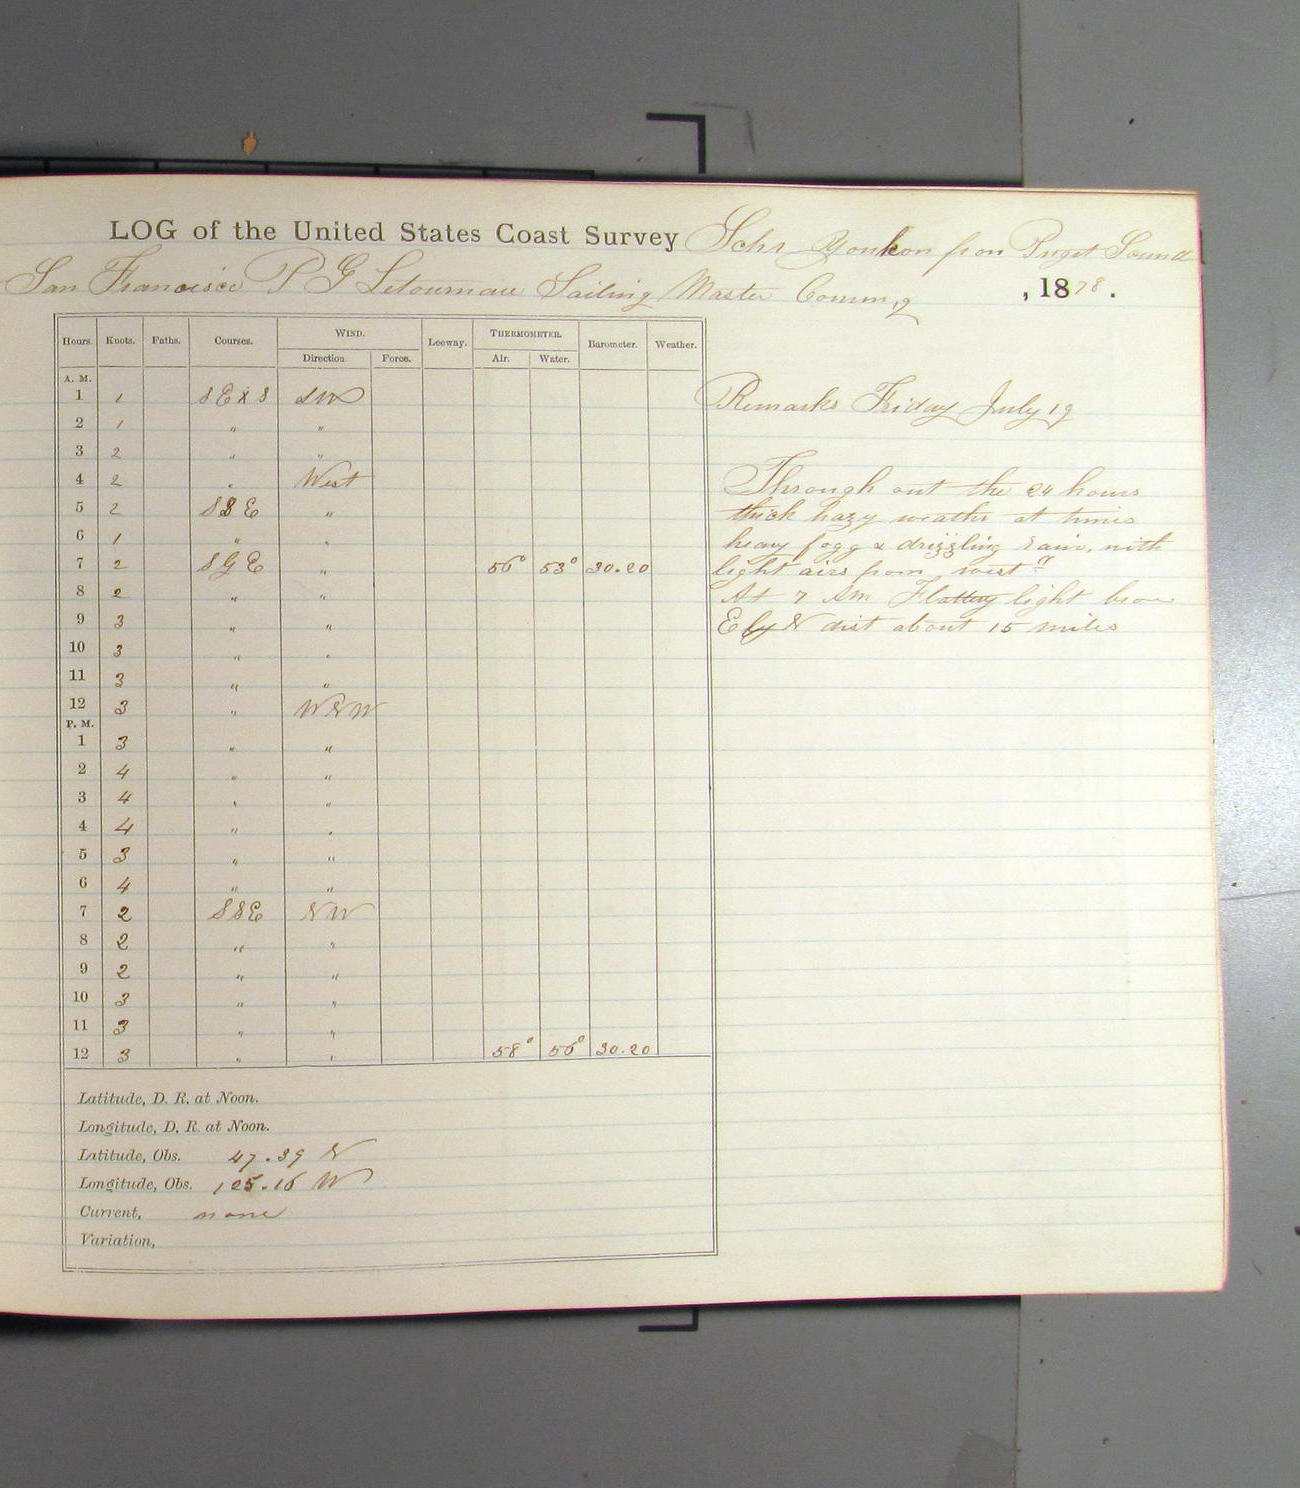 LOG of the United States Coast Survey Schr Yonkon from Puget Sound
San Francisco P G Letournau Sailing Master Comm,g , 1878.
Hours. Knots. Faths. Courses. WIND. Leeway. THERMOMETER. Barometer. Weather.
Direction Force. Air. Water.
A. M.
1 1 S E x S SW
2 1 " "
3 2 " "
4 2 " West
5 2 S S E "
6 1 " "
7 2 S E " 56° 53° 30.20
8 2 " "
9 3 " "
10 3 " "
11 3 " "
12 3 " WNW
P. M.
1 3 " "
2 4 " "
3 4 " "
4 4 " "
5 3 " "
6 4 " "
7 2 SSE NW
8 2 " "
9 2 " "
10 3 " "
11 3 " "
12 3 " " 58° 56° 30.20
Latitude, D. R. at Noon.
Longitude, D. R. at Noon.
Latitude, Obs. 47.39 N
Longitude, Obs. 125.16 W
Current, none
Variation,
Remarks Friday July 19
Through out the 24 hours
thick hazy weathr at times
heavy fogg & drizzling rain, with
light airs from west
At 7 Am Flattery light bore
E by N dist about 15 miles